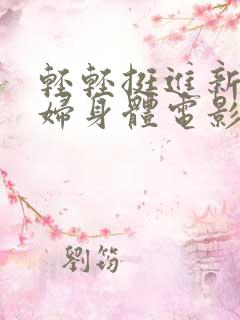 輕輕挺進新
婦身體電影
劉筠